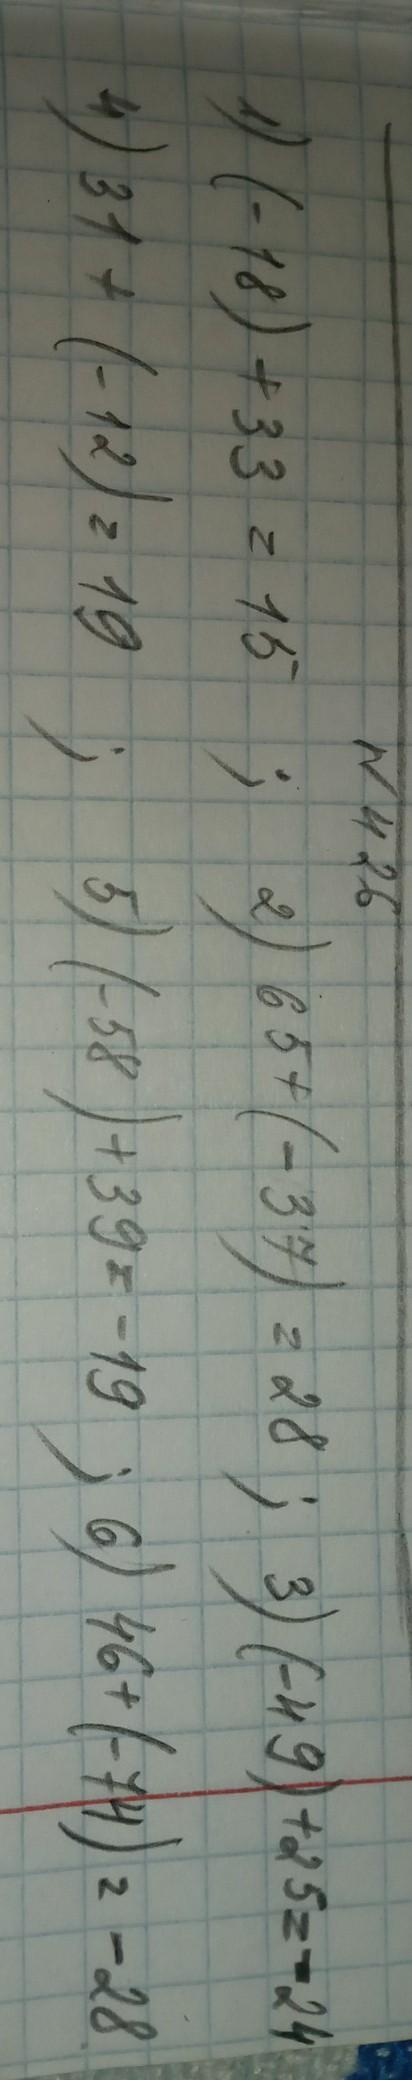 N 426
1) (-18) + 33 = 15 ; 2) 65 + (-37) = 28 ; 3) (-49) + 25 = -24
4) 31 + (-12) = 19 ; 5) (-58) + 39 = -19 ; 6) 46 + (-74) = -28